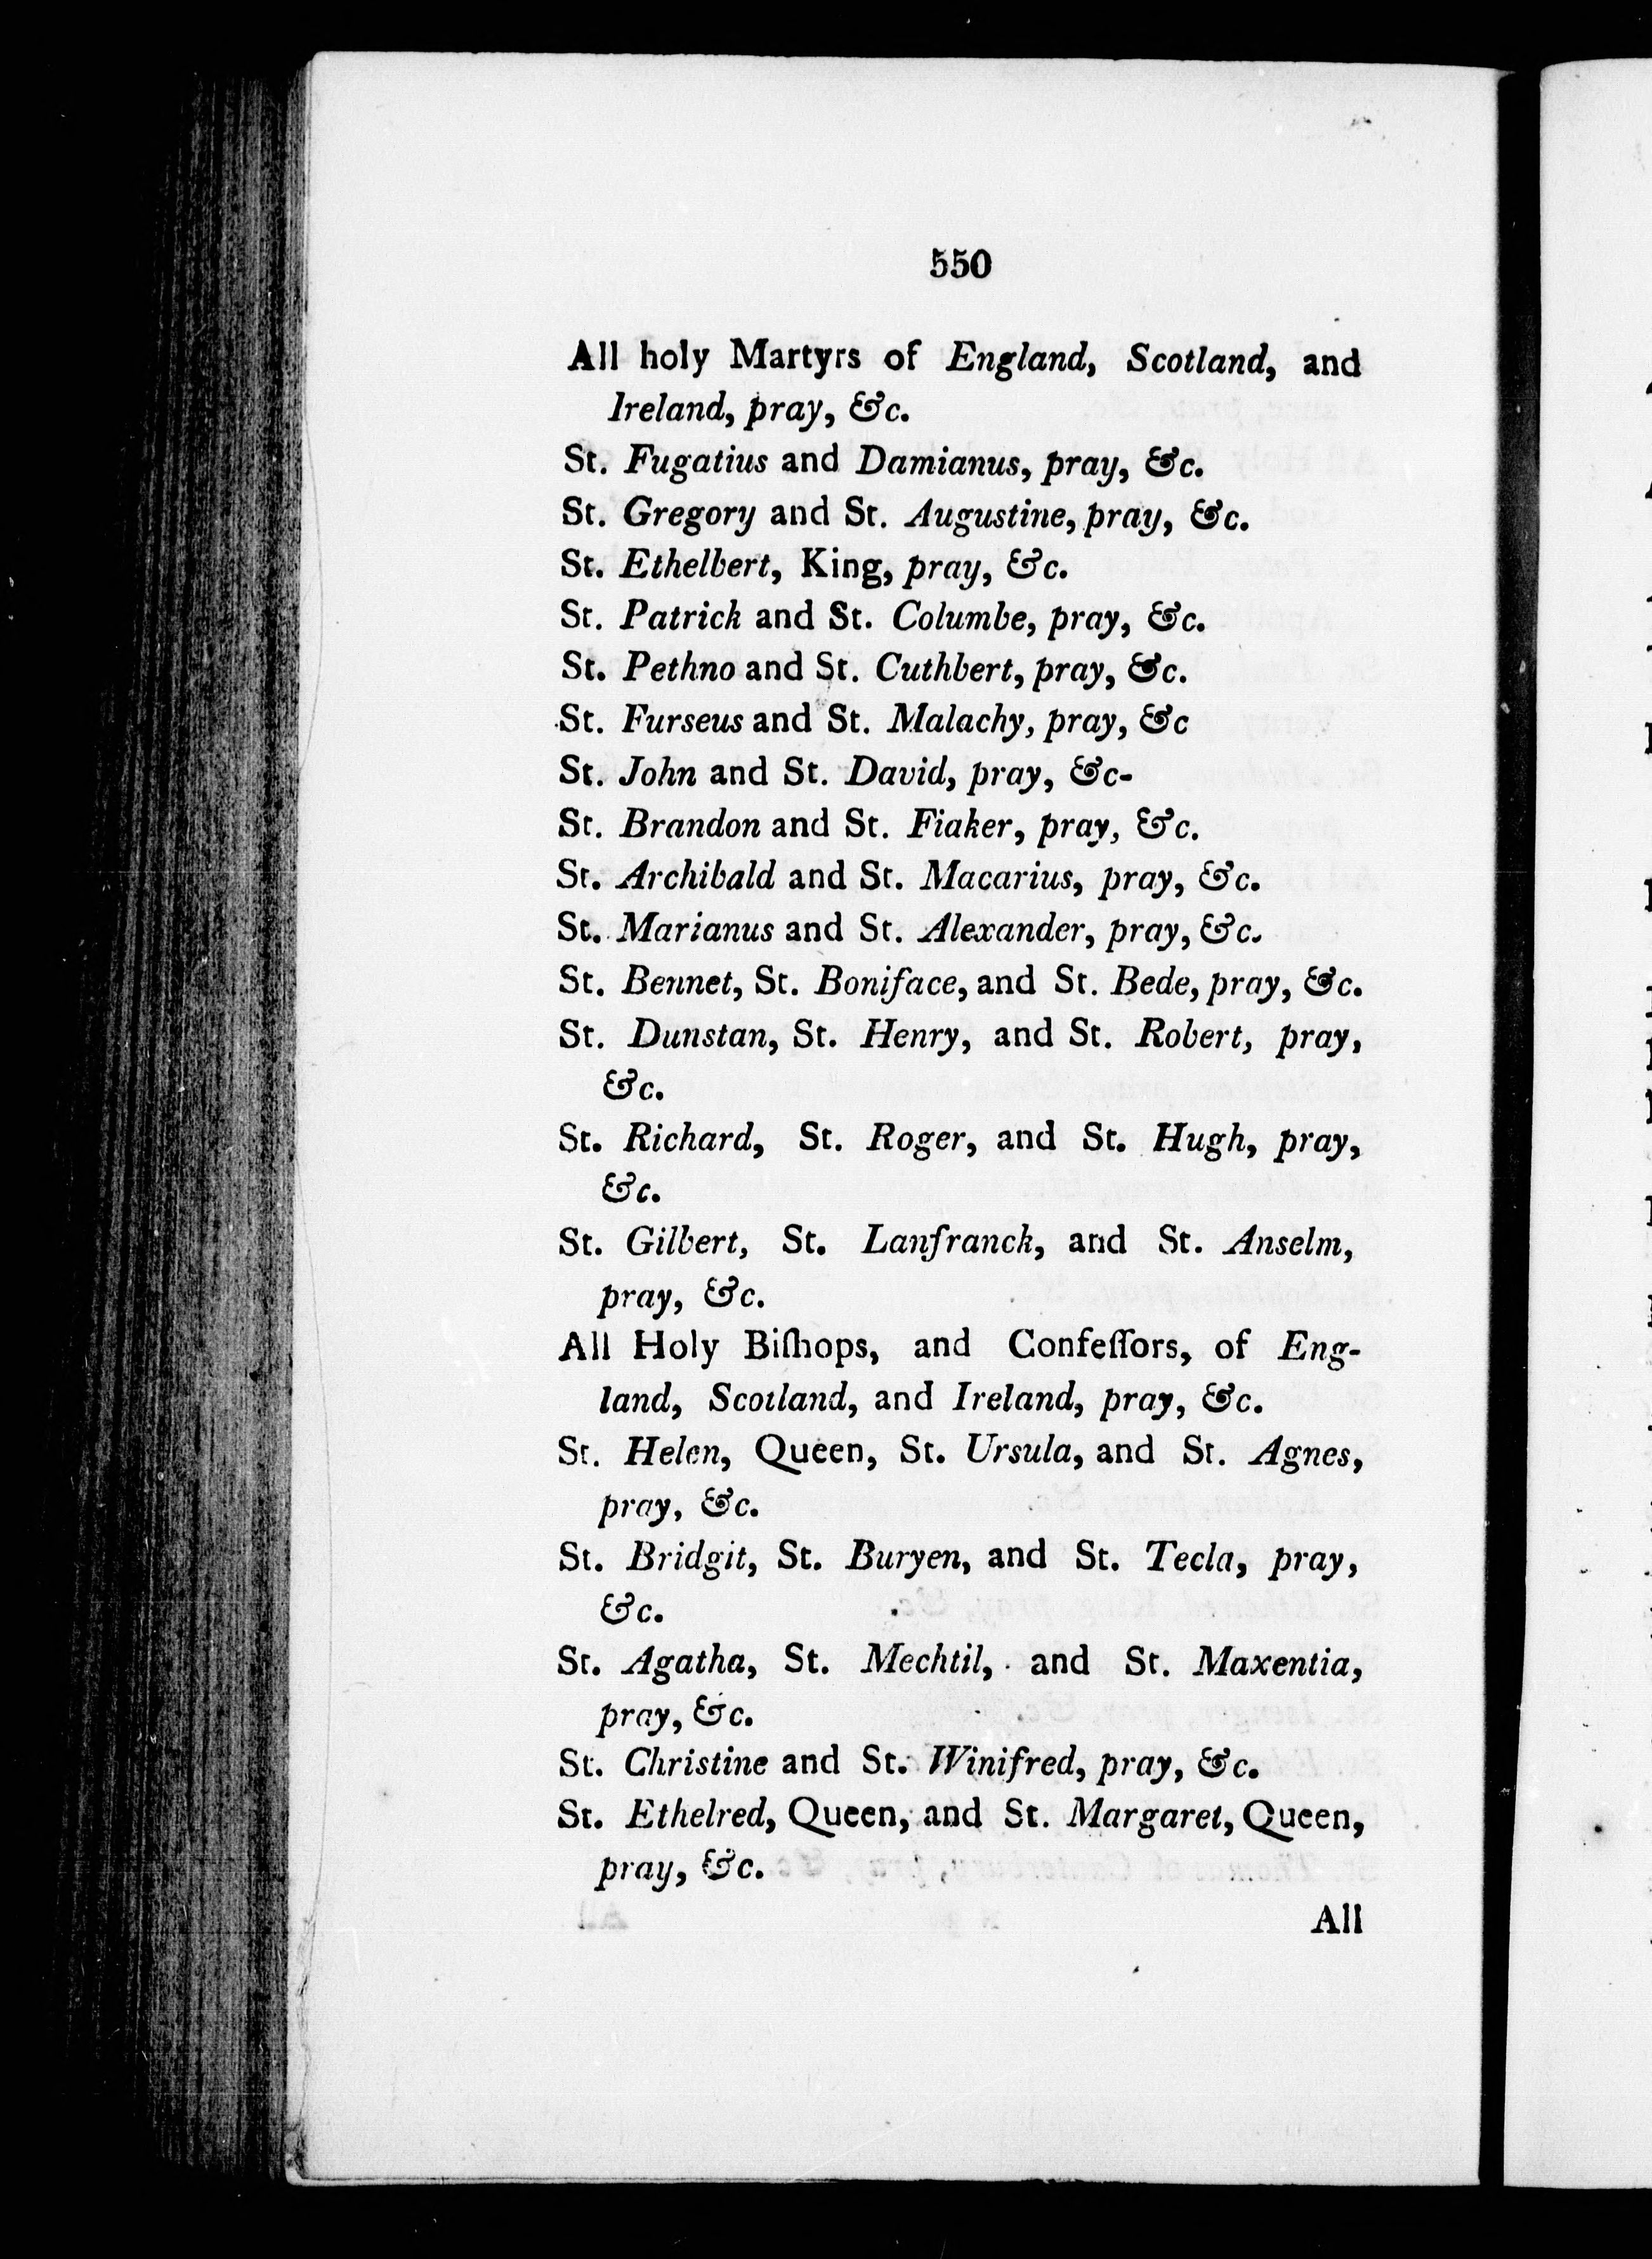 550
All holy Martyrs of England, Scotland, and
Ireland, pray, &c.
St. Fugatius and Damianus, pray, &c.
St. Gregory and St. Augustine, pray, &c.
St. Ethelbert, King, pray, &c.
St. Patrick and St. Columbe, pray, &c.
St. Pethno and St. Cuthbert, pray, &c.
St. Furseus and St. Malachy, pray, &c
St. John and St. David, pray, &c-
St. Brandon and St. Fiaker, pray, &c.
St. Archibald and St. Macarius, pray, &c.
St. Marianus and St. Alexander, pray, &c.
St. Bennet, St. Boniface, and St. Bede, pray, &c.
St. Dunstan, St. Henry, and St. Robert, pray,
&c.
St. Richard, St. Roger, and St. Hugh, pray,
&c.
St. Gilbert, St. Lanfranck, and St. Anselm,
pray, &c.
All Holy Biſhops, and Confeſſors, of Eng-
land, Scotland, and Ireland, pray, &c.
St. Helen, Queen, St. Ursula, and St. Agnes,
pray, &c.
St. Bridgit, St. Buryen, and St. Tecla, pray,
&c.
St. Agatha, St. Mechtil, and St. Maxentia,
pray, &c.
St. Christine and St. Winifred, pray, &c.
St. Ethelred, Queen, and St. Margaret, Queen,
pray, &c.
All